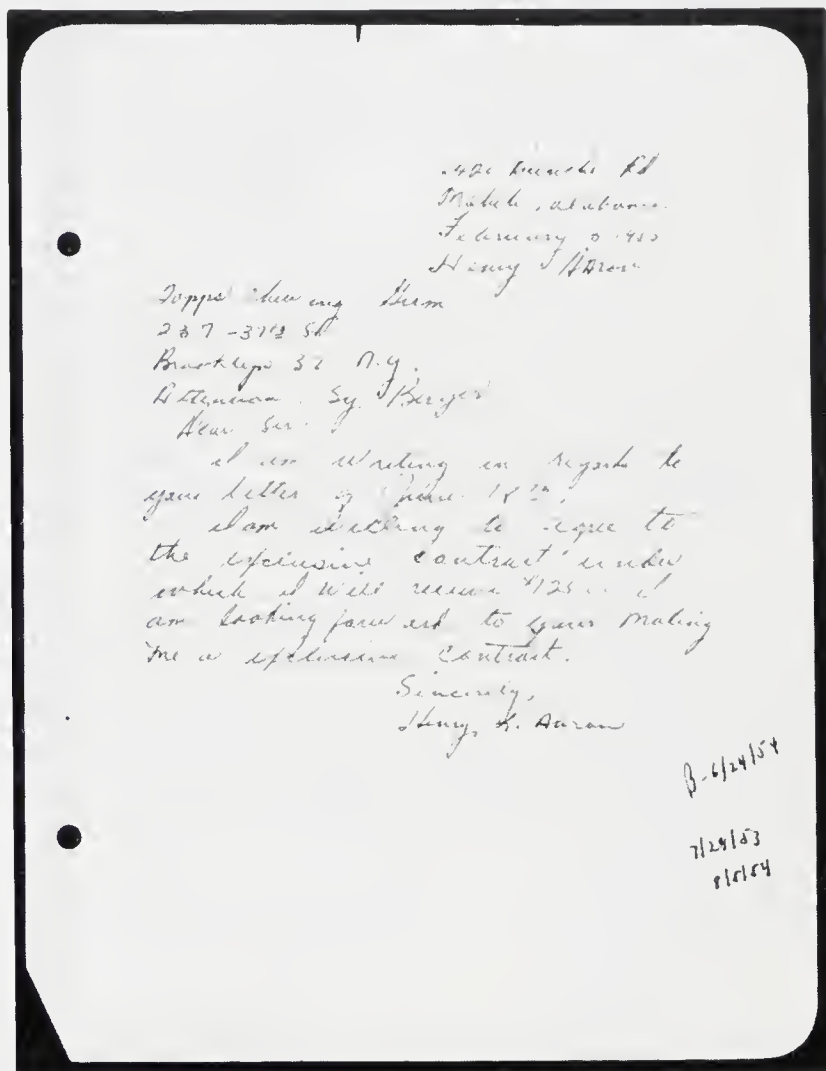 Rd
Mobile, Alabama
February
Henry Aaron
Topps Chewing Gum
237-37th St
Brooklyn 32 N.Y.
Attention. Sy Berger
Dear Sir.
I am writing in regards to
your letter of June 18th.
I am willing to agree to
the exclusive contract under
which I will receive $125 I
am looking forward to your making
me a exclusive contract.
Sincerely,
Henry, L. Aaron
B-6/24/54
7/24/53
8/5/54